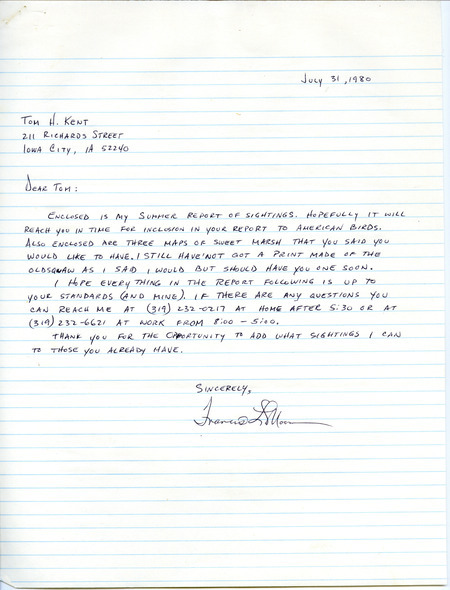 July 31, 1980
Tom H. Kent
211 Richards Street
Iowa City, IA 52240
Dear Tom:
Enclosed is my Summer Report of Sightings. Hopefully it will
reach you in time for inclusion in your report to American Birds.
Also enclosed are three maps of Sweet Marsh that you said you
would like to have. I still have not got a print made of the
Oldsquaw as I said I would but should have you one soon.
I hope everything in the report following is up to
your standards (and mine). If there are any questions you
can reach me at (319) 232-0217 at home after 5:30 or at
(319) 232-6621 at work from 8:00 – 5:00.
Thank you for the opportunity to add what sightings I can
to those you already have.
Sincerely,
Francis L. Moore